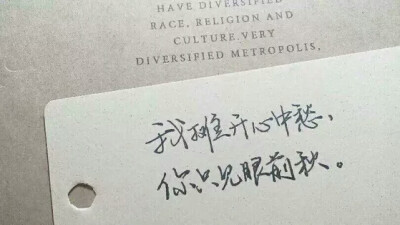 HAVE DIVERSIFIED
RACE, RELIGION AND
CULTURE.VERY
DIVERSIFIED METROPOLIS,
我摊开心中愁、
你只见眼前秋。